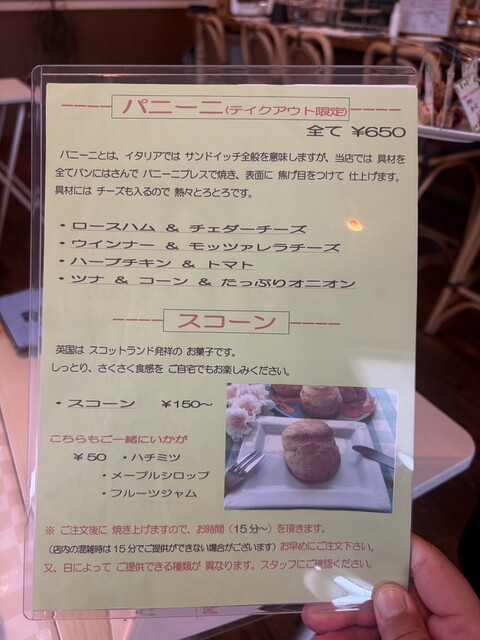 パニーニ(テイクアウト限定)
全て ¥650
パニーニとは、イタリアでは サンドイッチ全般を意味しますが、当店では 具材を
全てパンにはさんで パニーニプレスで焼き、表面に 焦げ目をつけて 仕上げます。
具材には チーズも入るので 熱々とろとろです。
・ロースハム & チェダーチーズ
・ウインナー & モッツァレラチーズ
・ハーブチキン & トマト
・ツナ & コーン & たっぷりオニオン
スコーン
英国は スコットランド発祥の お菓子です。
しっとり、さくさく食感を ご自宅でもお楽しみください。
・スコーン ¥150~
こちらもご一緒にいかが
¥50 ・ハチミツ
・メープルシロップ
・フルーツジャム
※ ご注文後に 焼き上げますので、お時間(15分~)を頂きます。
(店内の混雑時は15分でご提供ができない場合がございます) お早めにご注文下さい。
又、日によって ご提供できる種類が 異なります。スタッフにご確認ください。